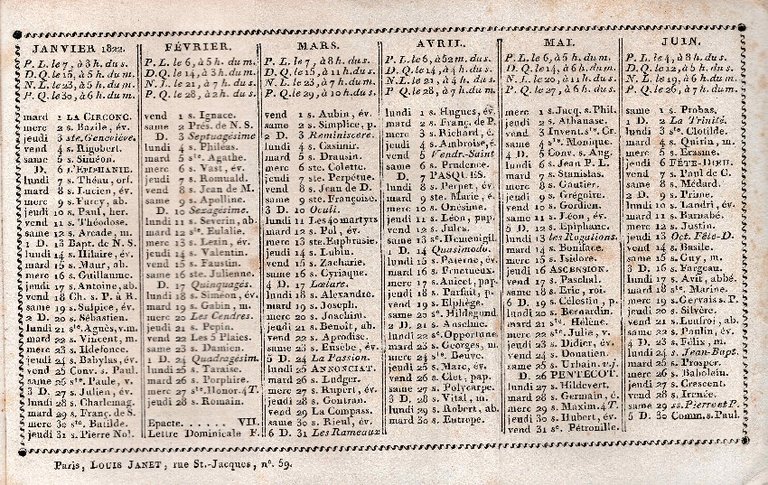 JANVIER 1822.
P. L. le 7, à 3 h. du m.
D. Q. le 15, à 5 h. du m.
N. L. le 23, à 5 h. du m.
P. Q. le 30, à 6 h. du m.
mard 1 LA CIRCONC.
merc 2 s. Basile, év.
jeudi 3 ste. Geneviève.
vend 4 s. Rigobert.
same 5 s. Siméon.
D. 6 L'EPIPHANIE.
lundi 7 s. Théau, orf.
mard 8 s. Lucien, év.
merc 9 s. Furcy, ab.
jeudi 10 s. Paul, her.
vend 11 s. Théodose.
same 12 s. Arcade, m.
1 D. 13 Bapt. de N. S.
lundi 14 s. Hilaire, év.
mard 15 s. Maur, ab.
merc 16 s. Guillaume.
jeudi 17 s. Antoine, ab.
vend 18 Ch. s. P. à R.
same 19 s. Sulpice, év.
2 D. 20 s. Sébastien.
lundi 21 ste. Agnès, v.m.
mard 22 s. Vincent, m.
merc 23 s. Ildefonce.
jeudi 24 s. Babylas, év.
vend 25 Conv. s. Paul.
same 26 ste. Paule, v.
3 D. 27 s. Julien, év.
lund 28 s. Charlemag.
mard 29 s. Franç. de S.
merc 30 ste. Batilde.
jeudi 31 s. Pierre Nol.
FÉVRIER.
P. L. le 6, à 5 h. du m.
D. Q. le 14, à 3 h. du m.
N. L. le 21, à 7 h. du s.
P. Q. le 28, à 2 h. du s.
vend 1 s. Ignace.
same 2 Prés. de N. S.
D. 3 Septuagésime
lundi 4 s. Philéas.
mard 5 ste. Agathe.
merc 6 s. Vast, év.
jeudi 7 s. Romuald.
vend 8 s. Jean de M.
same 9 s. Apolline.
D. 10 Sexagésime.
lundi 11 s. Severin, ab.
mard 12 ste. Eulalie.
merc 13 s. Lezin, év.
jeudi 14 s. Valentin.
vend 15 s. Faustin.
same 16 ste. Julienne.
D. 17 Quinquagés.
lundi 18 s. Siméon, év.
mard 19 s. Gabin, m.
merc 20 Les Cendres.
jeudi 21 s. Pepin.
vend 22 Les 5 Plaies.
same 23 s. Damien.
D. 24 Quadragésim.
lundi 25 s. Taraise.
mard 26 s. Porphire.
merc 27 ste. Honor. 4T.
jeudi 28 s. Romain.
Epacte. . . . . . VII.
Lettre Dominicale F.
MARS.
P. L. le 7, à 8 h. du s.
D. Q. le 15, à 11 h. du s.
N. L. le 23, à 7 h. du m.
P. Q. le 29, à 10 h. du s.
vend 1 s. Aubin, év.
same 2 s. Simplice, p.
2 D. 3 Reminiscère.
lundi 4 s. Casimir.
mard 5 s. Drausin.
merc 6 ste. Colette.
jeudi 7 ste. Perpétue.
vend 8 s. Jean de D.
same 9 ste. Françoise.
3 D. 10 Oculi.
lundi 11 Les 40 martyrs
mard 12 s. Pol, év.
merc 13 ste. Euphrasie.
jeudi 14 s. Lubin.
vend 15 s. Zacharie.
same 16 s. Cyriaque.
4 D. 17 Lætare.
lundi 18 s. Alexandre.
mard 19 s. Joseph.
merc 20 s. Joachim.
jeudi 21 s. Benoît, ab.
vend 22 s. Aprodise.
same 23 s. Eusèbe, év.
5 D. 24 La Passion.
lundi 25 ANNONCIAT.
mard 26 s. Ludger.
merc 27 s. Rupert, év.
jeudi 28 s. Gontran.
vend 29 La Compass.
same 30 s. Rieul, év.
6 D. 31 Les Rameaux
AVRIL.
P. L. le 6, à 52 m. du s.
D. Q. le 14, à 4 h. du s.
N. L. le 21, à 4 h. du s.
P. Q. le 28, à 7 h. du m.
lundi 1 s. Hugues, év.
mard 2 s. Franç. de P.
merc 3 s. Richard, é.
jeudi 4 s. Ambroise, é.
vend 5 Vendr. Saint
same 6 s. Prudence.
D. 7 PASQUES.
lundi 8 s. Perpet, év.
mard 9 ste. Marie, é.
merc 10 s. Onésime.
jeudi 11 s. Léon, pap.
vend 12 s. Jules.
same 13 s. Hemenigil.
1 D. 14 Quasimodo.
lundi 15 s. Paterne, év.
mard 16 s. Fructueux.
merc 17 s. Anicet, pap.
jeudi 18 s. Parfait, p.
vend 19 s. Elphège.
same 20 s. Hildegund.
2 D. 21 s. Anselme.
lundi 22 ste Opportune
mard 23 s. Georges, m.
merc 24 ste. Beuve.
jeudi 25 s. Marc, év.
vend 26 s. Clet, pap.
same 27 s. Polycarpe.
3 D. 28 s. Vital, m.
lundi 29 s. Robert, ab.
mard 30 s. Eutrope.
MAI.
P. L. le 6, à 5 h. du m.
D. Q. le 14, à 3 h. du m.
N. L. le 20, à 11 h. du s.
P. Q. le 27, à 6 h. du s.
merc 1 s. Jacq. s. Phil.
jeudi 2 s. Athanase.
vend 3 Invent. ste. Cr.
same 4 ste. Monique.
4 D. 5 Conv. s. Aug.
lundi 6 s. Jean P. L.
mard 7 s. Stanislas.
merc 8 s. Gautier.
jeudi 9 s. Grégoire.
vend 10 s. Gordien.
same 11 s. Léon, év.
5 D. 12 s. Epiphane.
lundi 13 les Rogations.
mard 14 s. Boniface.
merc 15 s. Isidore.
jeudi 16 ASCENSION.
vend 17 s. Paschal.
same 18 s. Eric, roi.
6 D. 19 s. Célestin, p.
lundi 20 s. Bernardin.
mard 21 ste. Hélène.
merc 22 ste. Julie, v.
jeudi 23 s. Didier, év.
vend 24 s. Donatien.
same 25 s. Urbain. v. j.
D. 26 PENTECÔT
lundi 27 s. Hildevert.
mard 28 s. Germain, é.
merc 29 s. Maxim. 4 T.
jeudi 30 s. Hubert, év.
vend 31 ste. Pétronille.
JUIN.
P. L. le 4, à 8 h. du s.
D. Q. le 12, à 6 h. du s.
N. L. le 19, à 6 h. du m.
P. Q. le 26, à 7 h. du m.
same 1 s. Probas.
1 D. 2 La Trinité.
lundi 3 ste. Clotilde.
mard 4 s. Quirin, m.
merc 5 s. Erasme.
jeudi 6 FÊTE-DIEU.
vend 7 s. Paul de C.
same 8 s. Médard.
2 D. 9 s. Prime.
lundi 10 s. Landri, év.
mard 11 s. Barnabé.
merc 12 s. Justin.
jeudi 13 Oct. Fête-D.
vend 14 s. Basile.
same 15 s. Guy, m.
3 D. 16 s. Fargeau.
lundi 17 s. Avit, abbé.
mard 18 ste. Marine.
merc 19 s. Gervais s. P.
jeudi 20 s. Silvère.
vend 21 s. Leufroi, ab.
same 22 s. Paulin, év.
4 D. 23 s. Félix, m.
lundi 24 s. Jean-Bapt.
mard 25 s. Prosper.
merc 26 s. Babolein.
jeudi 27 s. Crescent.
vend 28 s. Irenée.
same 29 ss. Pierre et P.
5 D. 30 Comm. s. Paul.
Paris, LOUIS JANET, rue St.-Jacques, nº. 59.